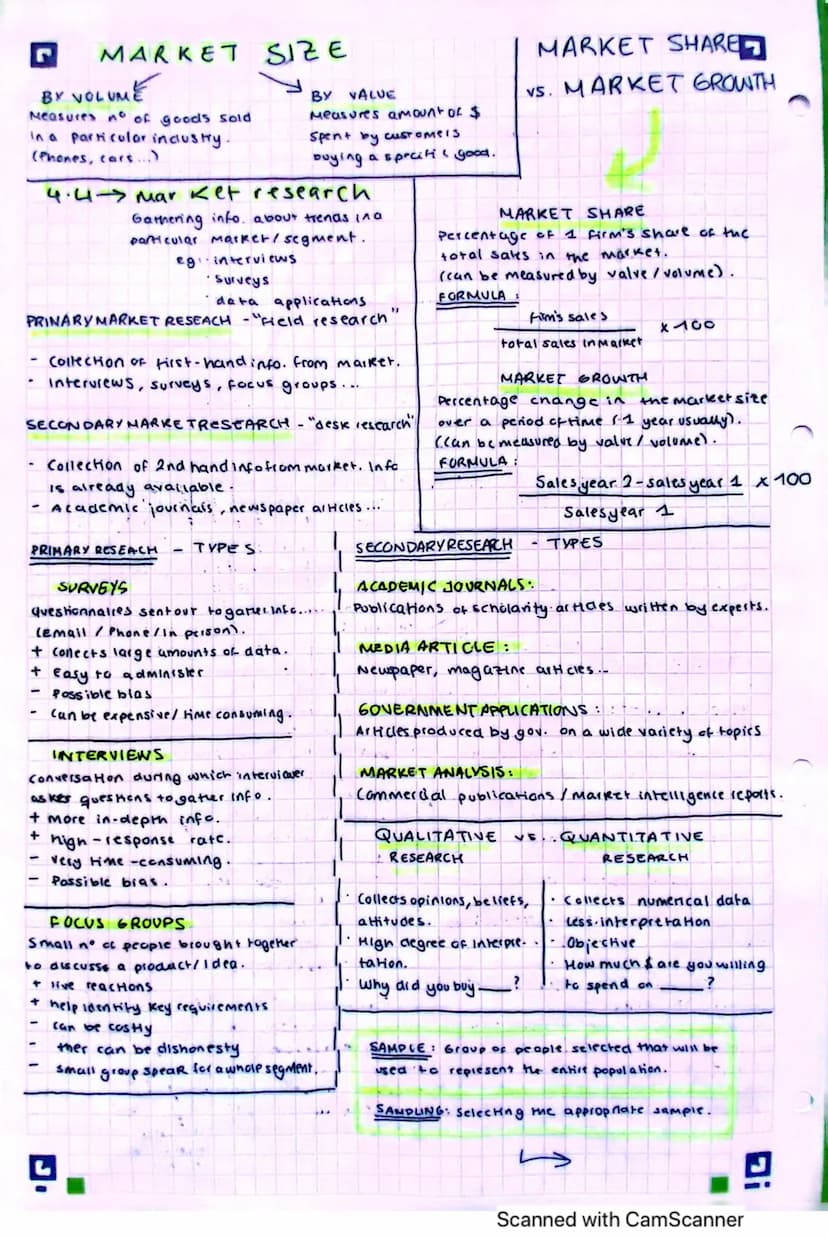 MARKET SIZE
BY VOLUME
Measures nº of goods sold
in a particular industry.
(Phones, cars...)
BY VALUE
Measures amount of $
spent by customers
buying a specific good.
MARKET SHARE
vs. MARKET GROWTH
4.4 → market research
Gathering info. about trends in a
particular market/segment.
eg: · interviews
· surveys
· data applications
PRIMARY MARKET RESEACH - "Field research"
- Collection of first-hand info. from market.
- Interviews, surveys, focus groups...
SECONDARY MARKET RESEARCH - "desk research"
- Collection of 2nd hand info from market. Info
is already available.
- Academic journals, newspaper articles...
MARKET SHARE
Percentage of 1 firm's share of the
total sales in the market.
(can be measured by value / volume).
FORMULA:
Firm's sales
x 100
total sales in market
MARKET GROWTH
Percentage change in the market size
over a period of time (-1 year usually).
(Can be measured by value / volume).
FORMULA:
Sales year 2 - sales year 1 x 100
Sales year 1
PRIMARY RESEACH - TYPES
SURVEYS
Questionnaires sent out to gather info....
(Email / Phone / In person).
+ Collects large amounts of data.
+ Easy to administer
- Possible bias
- Can be expensive / time consuming.
INTERVIEWS
Conversation during which interviewer
asks questions to gather info.
+ more in-depth info.
+ high-response rate.
- very time-consuming.
- Possible bias.
FOCUS GROUPS
Small nº of people brought together
to discusse a product / idea.
+ live reactions
+ help identify key requirements
- can be costly
- ther can be dishonesty
- small group speak for a whole segment.
SECONDARY RESEARCH - TYPES
ACADEMIC JOURNALS:
Publications of scholarity articles written by experts.
MEDIA ARTICLE:
Newspaper, magazine articles...
GOVERNMENT APPLICATIONS:
Articles produced by gov. on a wide variety of topics
MARKET ANALYSIS:
Commercial publications / market intelligence reports.
QUALITATIVE vs. QUANTITATIVE
RESEARCH RESEARCH
· Collects opinions, beliefs,
attitudes.
· High degree of interpre-
tation.
· Why did you buy ____?
· Collects numerical data
· Less interpretation
· Objective
· How much $ are you willing
to spend on ____?
SAMPLE: Group of people selected that will be
used to represent the entire population.
SAMPLING: Selecting the appropriate sample.
Scanned with CamScanner